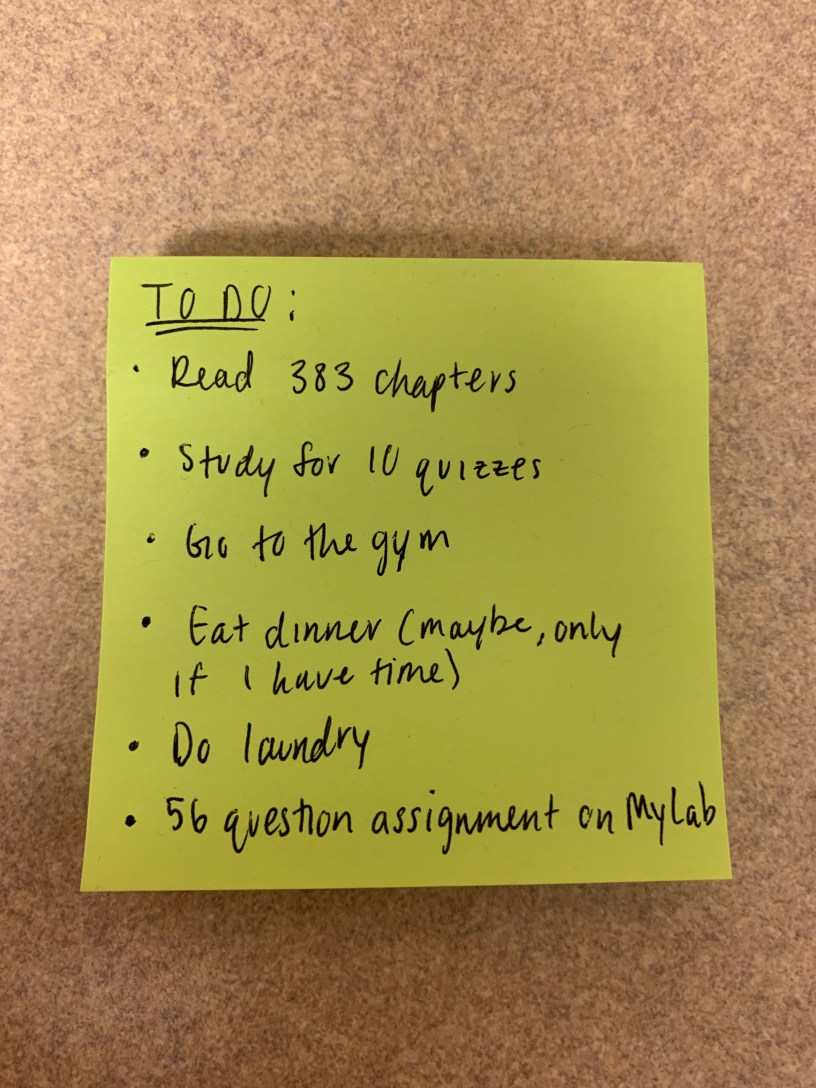 TO DO:
• Read 383 chapters
• Study for 10 quizzes
• Go to the gym
• Eat dinner (maybe, only
if I have time)
• Do laundry
• 56 question assignment on MyLab